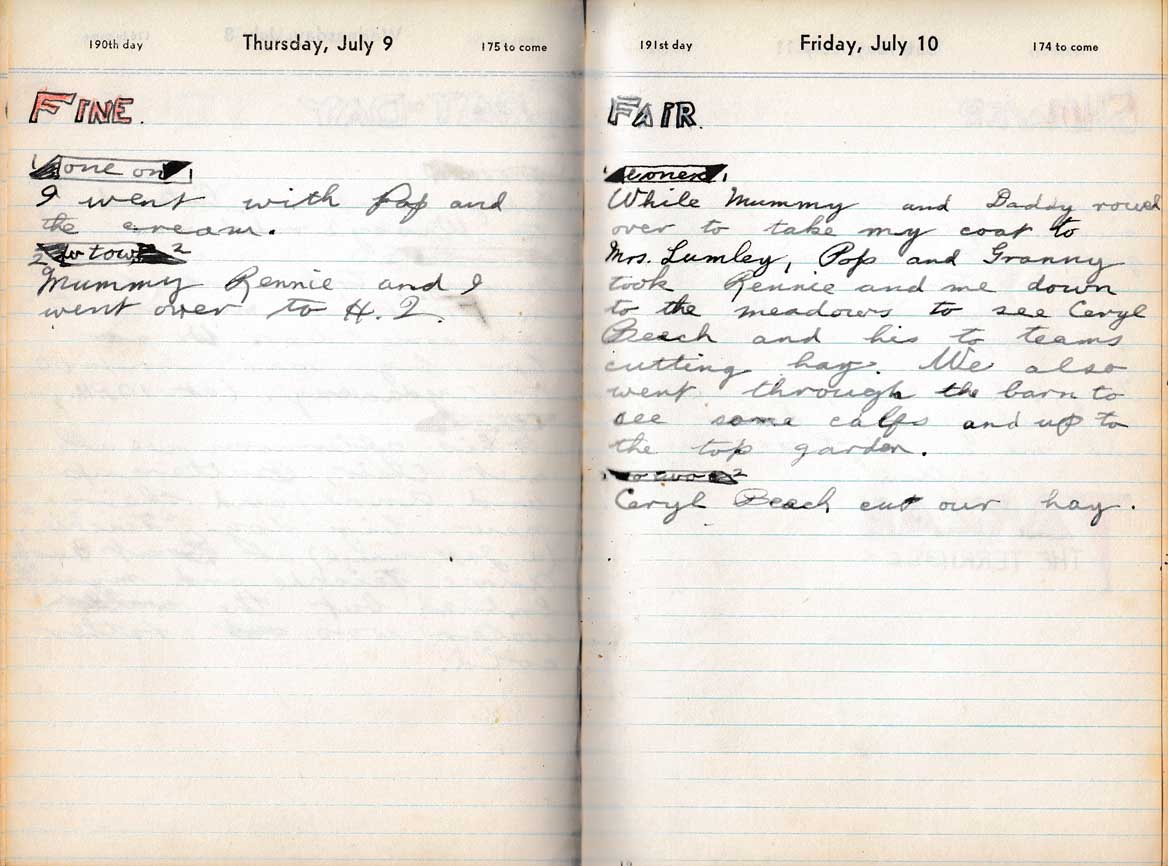 190th day Thursday, July 9 175 to come
FINE.
one on
I went with Pop and
the cream.
2 tow 2
Mummy Rennie and I
went over to H. Q.
191st day Friday, July 10 174 to come
FAIR.
While Mummy and Daddy rowed
over to take my coat to
Mrs. Lumley, Pop and Granny
took Rennie and me down
to the meadows to see Ceryl
Beach and his to teams
cutting hay. We also
went through the barn to
see some calfs and up to
the top garden.
2
Ceryl Beach cut our hay.